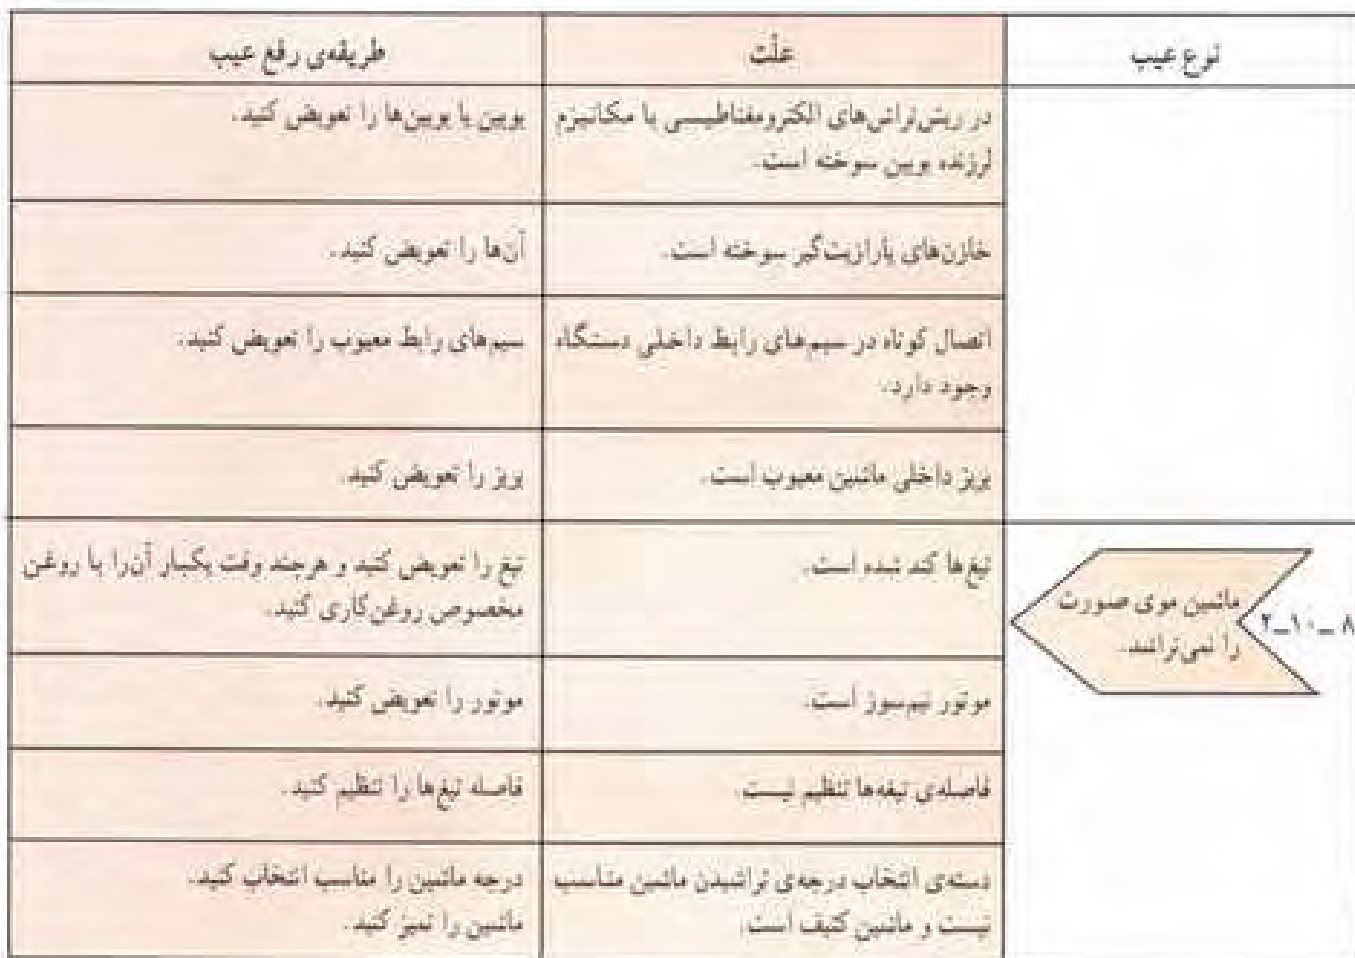 نوع عیب
علّت
طریقه‌ی رفع عیب
در ریش‌تراش‌های الکترومغناطیسی با مکانیزم
لرزنده بوبین سوخته است.
بوبین یا بوبین‌ها را تعویض کنید.
خازن‌های پارازیت‌گیر سوخته است.
آن‌ها را تعویض کنید.
اتصال کوتاه در سیم‌های رابط داخلی دستگاه
وجود دارد.
سیم‌های رابط معیوب را تعویض کنید.
پریز داخلی ماشین معیوب است.
پریز را تعویض کنید.
۸ ــ۱۰ــ۲
ماشین موی صورت
را نمی‌تراشد.
تیغ‌ها کند شده است.
تیغ را تعویض کنید و هرچند وقت یکبار آن‌را با روغن
مخصوص روغن‌کاری کنید.
موتور نیم‌سوز است.
موتور را تعویض کنید.
فاصله‌ی تیغه‌ها تنظیم نیست.
فاصله تیغ‌ها را تنظیم کنید.
دسته‌ی انتخاب درجه‌ی تراشیدن ماشین مناسب
نیست و ماشین کثیف است.
درجه ماشین را مناسب انتخاب کنید.
ماشین را تمیز کنید.